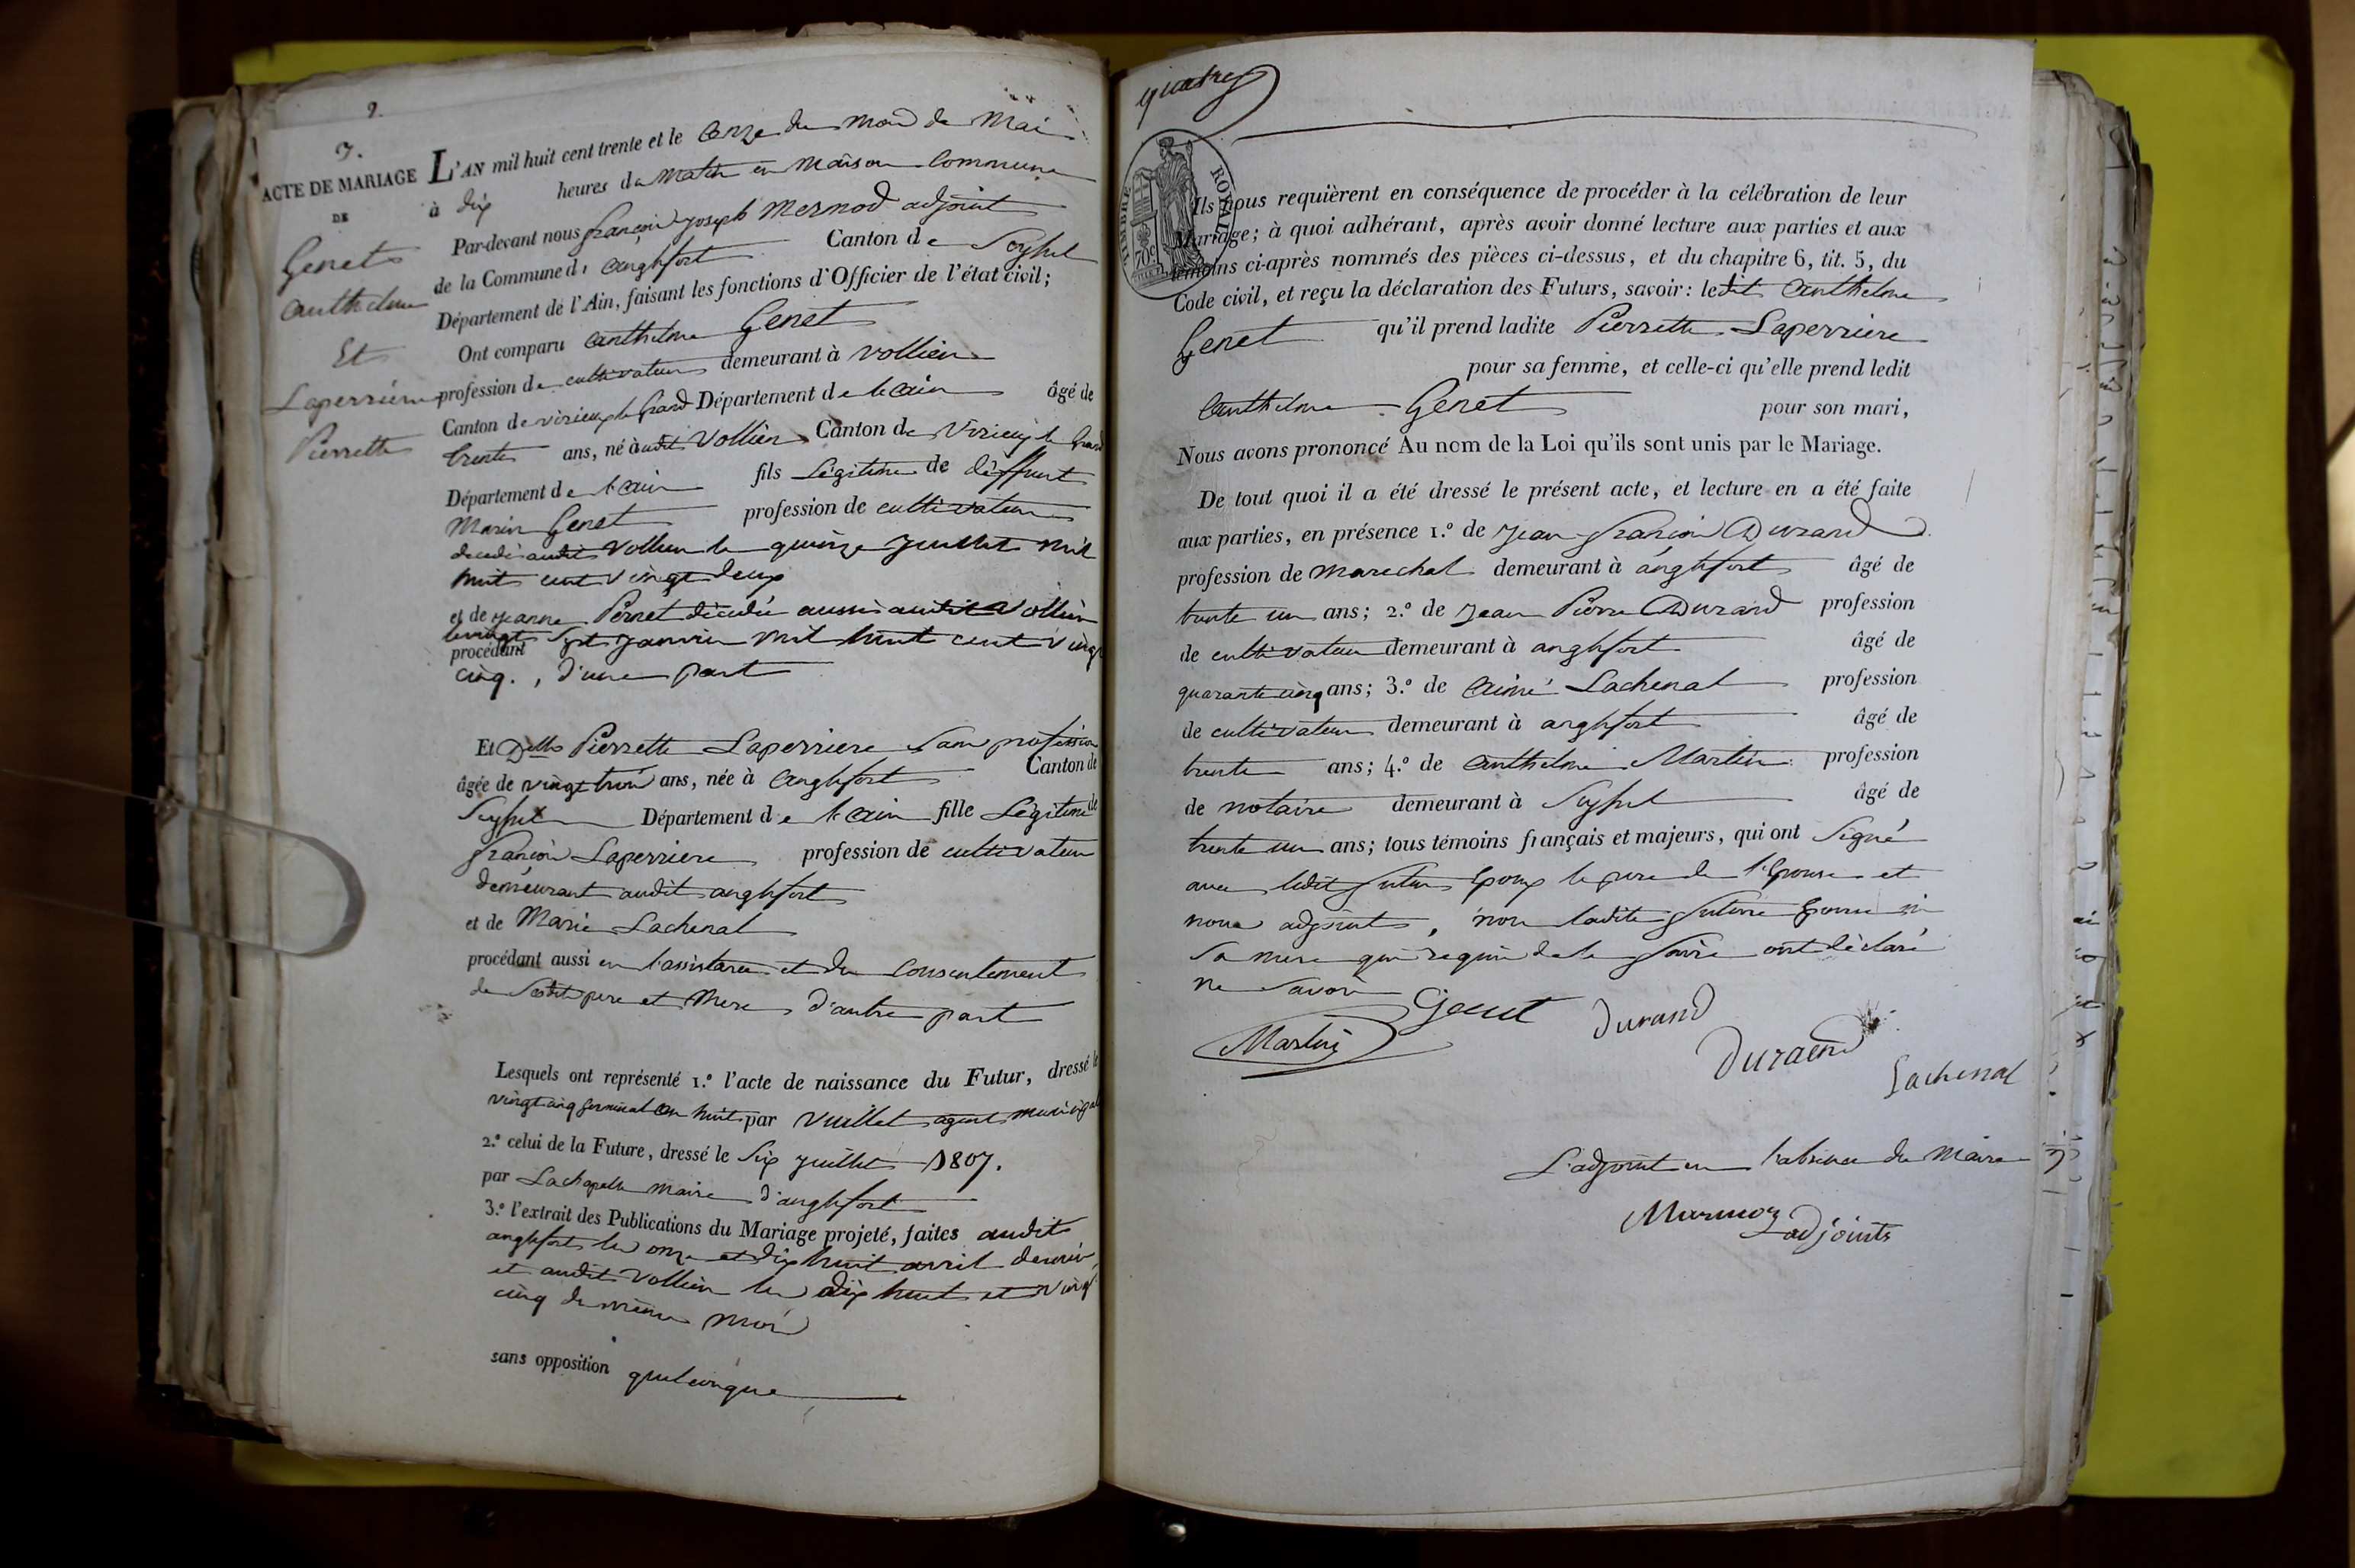 2.
7.
ACTE DE MARIAGE
DE
Genet
Anthelme
Et
Laperriere
Pierrette
L'AN mil huit cent trente et le onze du mois de Mai
à dix heures du matin en maison Commune
Par-devant nous françois joseph Mermod adjoint
de la Commune d' anglefort Canton de Seyssel
Département de l'Ain, faisant les fonctions d'Officier de l'état civil;
Ont comparu anthelme Genet
profession de cultivateur demeurant à Vollien
Canton de virieux le Grand Département de l'ain âgé de
trente ans, né audit Vollien Canton de Virieux le Grand
Département de l'ain fils Légitime de deffunt
Marin Genet profession de cultivateur
decedé audit Vollien le quinze Juillet mil
huit cent vingt deux
et de jeanne Pernet décédée aussi audit Vollien
le vingt sept janvier mil huit cent vingt
procédant
cinq. , d'une part
Et Dlle Pierrette Laperriere Sans profession
âgée de vingt trois ans, née à anglefort Canton de
Seyssel Département de l'ain fille Légitime de
françois Laperriere profession de cultivateur
demeurant audit anglefort
et de Marie Lachenal
procédant aussi en l'assistance et du Consentement
de Sesdits pere et Mere d'autre part
Lesquels ont représenté 1.º l'acte de naissance du Futur, dressé le
vingt cinq germinal an huit par Vuillet agent municipal
2.º celui de la Future, dressé le Six juillet 1807.
par Lachapelle maire d'anglefort
3.º l'extrait des Publications du Mariage projeté, faites audit
anglefort les onze et dix huit avril dernier
et audit Vollien les dix huit et vingt
cinq du même mois
sans opposition quelconque
quatre
TIMBRE ROYAL
70c
Ils nous requièrent en conséquence de procéder à la célébration de leur
Mariage; à quoi adhérant, après avoir donné lecture aux parties et aux
témoins ci-après nommés des pièces ci-dessus, et du chapitre 6, tit. 5, du
Code civil, et reçu la déclaration des Futurs, savoir: ledit anthelme
Genet qu'il prend ladite Pierrette Laperriere
pour sa femme, et celle-ci qu'elle prend ledit
anthelme Genet pour son mari,
Nous avons prononcé Au nom de la Loi qu'ils sont unis par le Mariage.
De tout quoi il a été dressé le présent acte, et lecture en a été faite
aux parties, en présence 1.º de Jean françois Durand
profession de marechal demeurant à anglefort âgé de
trente un ans; 2.º de Jean Pierre Durand profession
de cultivateur demeurant à anglefort âgé de
quarante cinq ans; 3.º de aimé Lachenal profession
de cultivateur demeurant à anglefort âgé de
trente ans; 4.º de anthelme Martin profession
de notaire demeurant à Seyssel âgé de
trente un ans; tous témoins français et majeurs, qui ont Signé
avec ledit futur Epoux le pere de l'Epouse et
nous adjoint, non ladite future Epouse ni
Sa mere qui requis de le faire ont déclaré
ne Savoir
Martin
Genet
Durand
Durand
Lachenal
L'adjoint en l'absence du Maire
Mermoz
adjoints